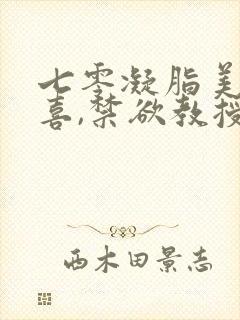 七零凝脂美
喜,禁欲教授
西木田景志